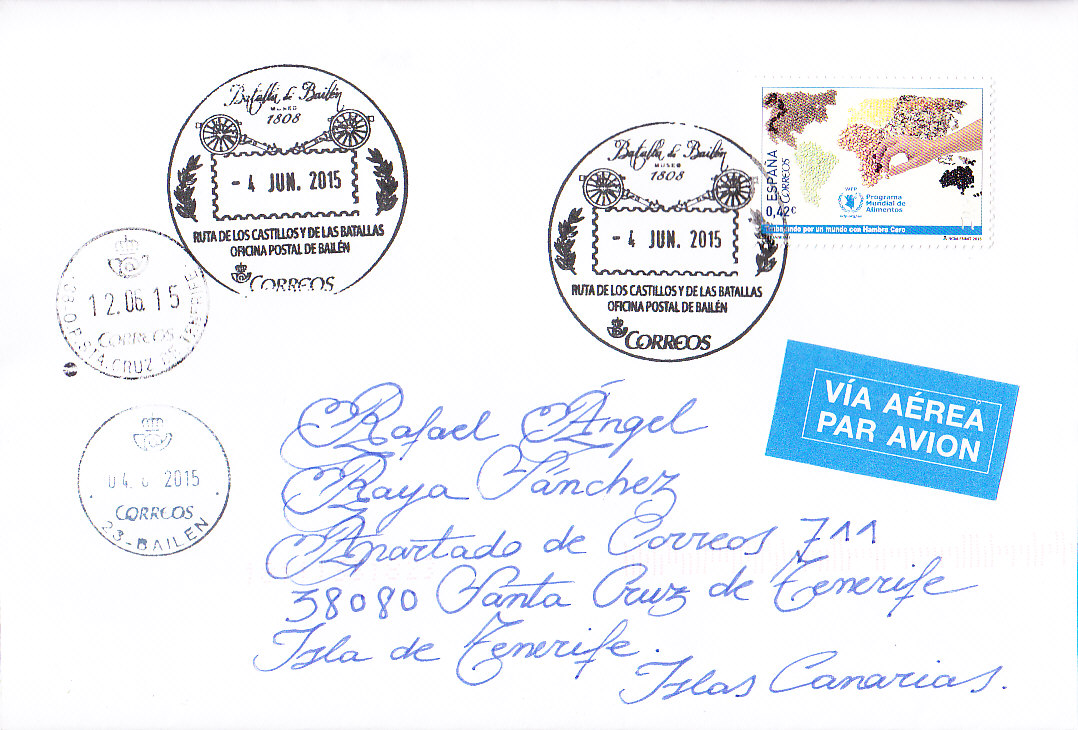 Batalla de Bailén
MUSEO
1808
- 4 JUN. 2015
RUTA DE LOS CASTILLOS Y DE LAS BATALLAS
OFICINA POSTAL DE BAILÉN
CORREOS
Batalla de Bailén
MUSEO
1808
- 4 JUN. 2015
RUTA DE LOS CASTILLOS Y DE LAS BATALLAS
OFICINA POSTAL DE BAILÉN
CORREOS
ESPAÑA
CORREOS
0,42€
WFP
wfp.org/es
Programa
Mundial de
Alimentos
ando por un mundo con Hambre Cero
12.06.15
CORREOS
STA.CRUZ DE TENERIFE
04. 6 2015
CORREOS
23-BAILEN
VÍA AÉREA
PAR AVION
Rafael Ángel
Raya Sánchez
Apartado de Correos 711
38080 Santa Cruz de Tenerife
Isla de Tenerife.
Islas Canarias.